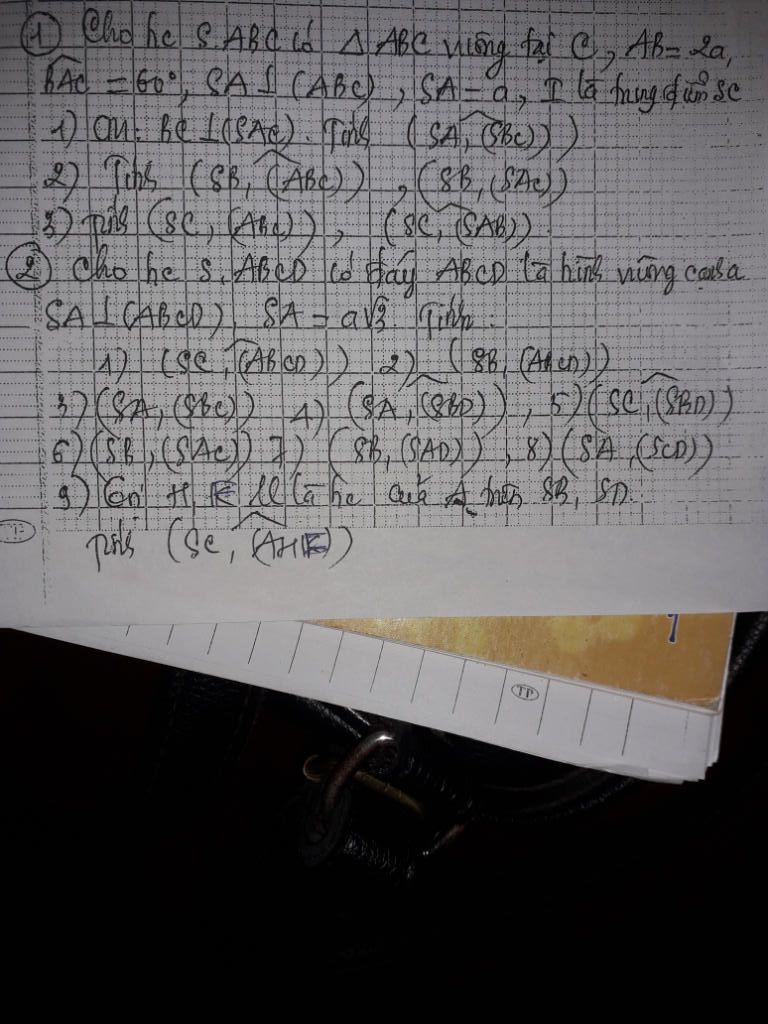 ① Cho hc S.ABC có Δ ABC vuông tại C, AB = 2a,
BAC = 60°, SA ⊥ (ABC), SA = a, I là trung điểm SC
1) CM: BC ⊥ (SAC). Tính (SA, (SBC))
2) Tính (SB, (ABC)), (SB, (SAC))
3) Tính (SC, (ABC)), (SC, (SAB)).
② Cho hc S.ABCD có đáy ABCD là hình vuông cạnh a
SA ⊥ (ABCD), SA = a√3. Tính:
1) (SC, (ABCD)) 2) (SB, (ABCD))
3) (SA, (SBC)) 4) (SA, (SBD)), 5) (SC, (SBD))
6) (SB, (SAC)) 7) (SB, (SAD)), 8) (SA, (SCD))
9) Gọi H, K là hc của A trên SB, SD.
Tính (SC, (AHK))
TP
TP